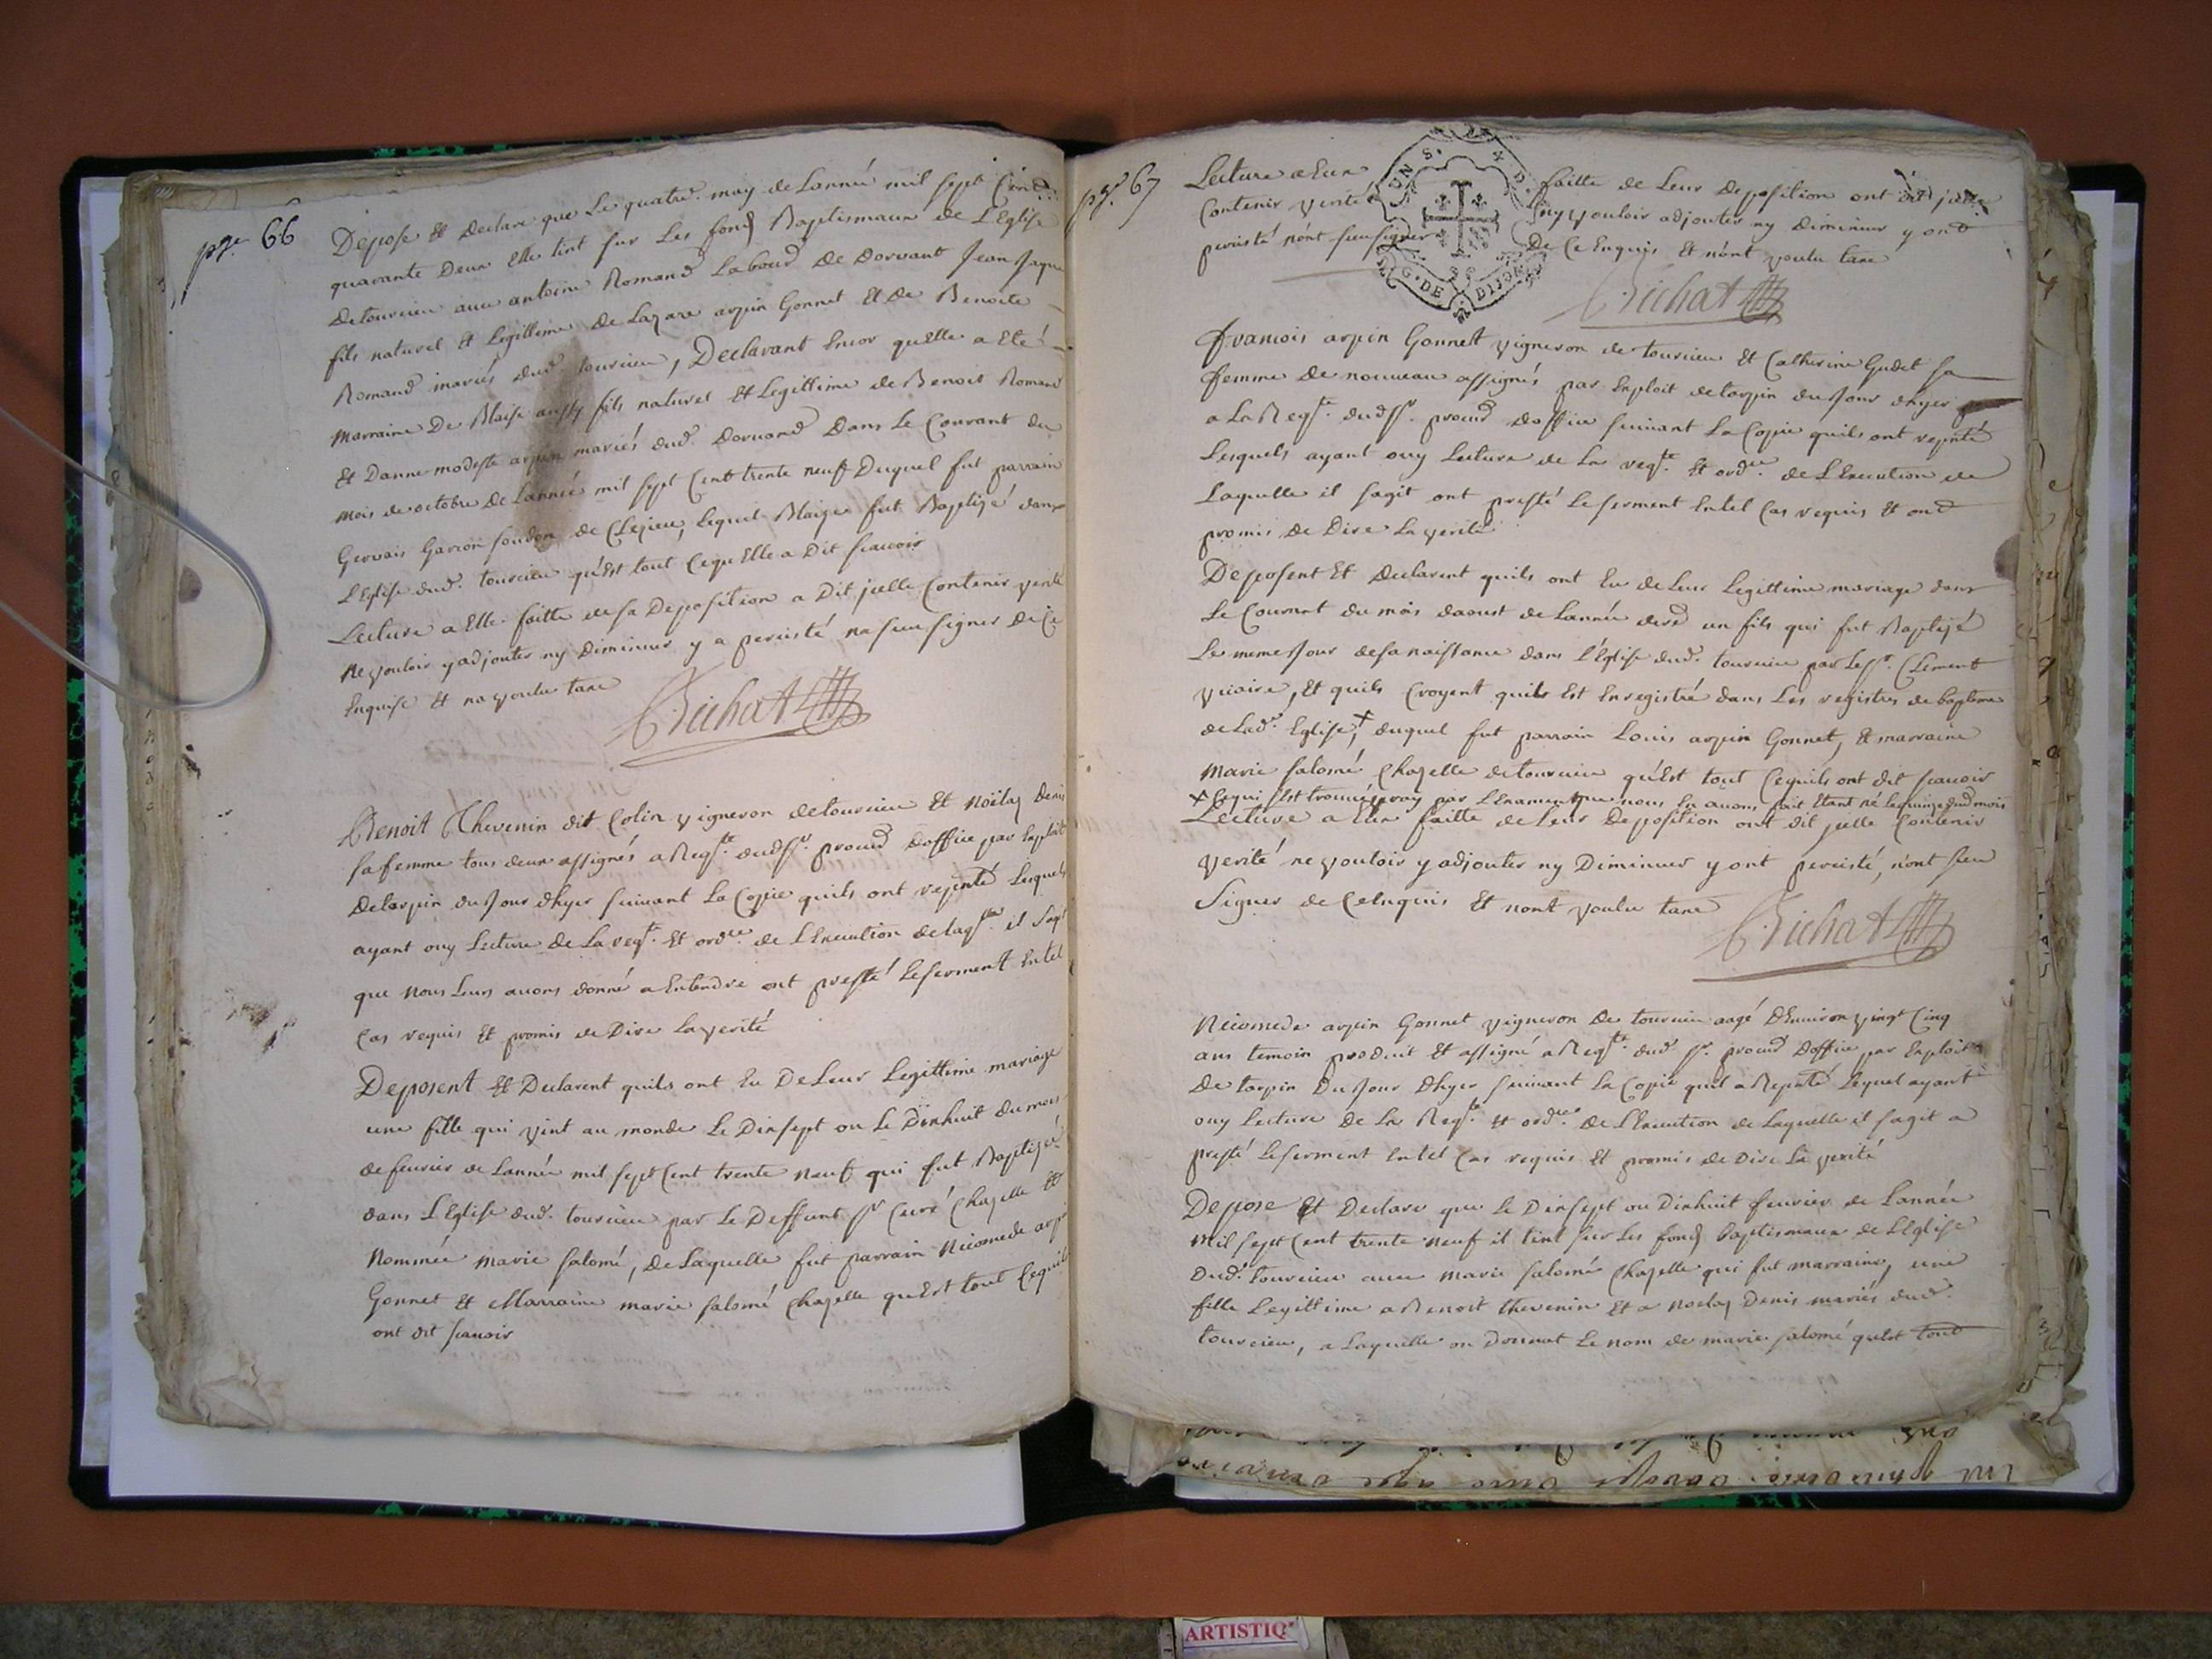 pge. 66
Depose Et Declare que Le quatre. may de Lanneé mil sept Cent
quarante Deux Elle tint sur Les fond Baptismaux de L'Eglise
de tourcieu avec antoine Romand Laboud De Dorvant Jean Jaque
fils naturel Et Legittime De Lazare arpin Gonnet Et De Benoite
Romand mariés dud. tourcieu, Declarant Encor qu'Elle a Eté
Marraine De Blaise aussy fils naturel Et Legittime de Benoit Romand
Et Danne modeste arpin mariés dud. Dorvand Dans Le Courant du
mois de octobre De Lanneé mil sept Cent trente neuf Duquel fut parrain
Gervais Garron foudon de Clezieu, Lequel Blaize fut Baptizé dans
L'Eglise dud. tourcieu qu'Est tout Ce qu'Elle a Dit scauoir
Lecture a Elle faitte de sa Deposition a Dit jcelle Contenir verité
ne vouloir y adjouter ny Diminuer y a percisté na sceu signer De Ce
Enquise Et na voulu taxe
Bichat
Benoit Thevenin dit Colin vigneron de tourcieu Et Noelaz Denis
sa femme tous deux assignés a Reqte. dud sr. procud Doffice par Exploit
de tarpin du Jour dhyer suiuant La Copie quils ont repnté Lesquels
ayant ouy Lecture de La reqte. Et ordce. de L'Execution de laqlle. il sagt
que nous Leurs auons donné a Entendre ont presté Le serment En tel
Cas requis Et promis de Dire La verité
Deposent Et Declarent quils ont Eu De Leur Legittime mariage
une fille qui vint au monde Le Dixsept ou Le Dixhuit du mois
de feurier de Lanneé mil sept Cent trente neuf qui fut Baptizeé
dans L'Eglise dud. tourcieu par Le Deffunt sr Curé Chapelle Et
Nommeé marie salomé, de Laquelle fut parrain Nicomede arpin
Gonnet Et Marraine marie salomé Chapelle qu'Est tout Ce quils
ont dit scauoir
pge. 67
Lecture a Eux faitte de Leur Deposition ont dit jcelle
Contenir verité ny vouloir adjouter ny Diminuer y ont
percisté n'ont sceu signer De Ce Enquis Et n'ont voulu taxe
G. DE DIJON
Bichat
Francois arpin Gonnet vigneron de tourcieu Et Catherine Gudet sa
femme de nouueau assignés par Exploit de tarpin du Jour dhyer
a La Reqte. dud sr. procud doffice suiuant La Copie quils ont repnté
Lesquels ayant ouy Lecture de La reqte. Et ordce. de L'Execution de
Laquelle il sagit ont presté Le serment En tel Cas requis Et ont
promis de Dire La verité
Deposent Et Declarent quils ont Eu de Leur Legittime mariage dans
Le Courant du mois daoust de Lanneé dere un fils qui fut Baptizé
Le meme Jour de sa naissance dans L'Eglise dud. tourcieu par Le sr. Clement
vicaire, Et quils Croyent quils Est Enregistré dans Les registres de baptemes
de Lad. Eglise, + duquel fut parrain Louis arpin Gonnet, Et marraine
Marie salomé Chapelle de tourcieu qu'Est tout Ce quils ont dit scauoir
+ Ce qui s'Est trouué vray par L'Examen que nous En auons fait Etant né Le quinze dud mois
Lecture a Eux faitte de Leur Deposition ont dit jcelle Contenir
verité ne vouloir y adjouter ny Diminuer y ont percisté, n'ont sceu
Signer de Ce Enquis Et n'ont voulu taxe
Bichat
Nicomede arpin Gonnet vigneron De tourcieu aagé D'Enuiron vingt Cinq
ans temoin produit Et assigné a Reqte. dud. sr. procud Doffice par Exploit
De tarpin Du Jour Dhyer suiuant La Copie quil a Repnté Lequel ayant
ouy Lecture de La Reqte. Et ordce. de L'Execution de Laquelle il sagit a
presté Le serment En tel Cas requis Et promis de Dire La verité
Depose Et Declare que Le Dixsept ou Dixhuit feurier de Lanneé
mil sept Cent trente neuf il tint sur Les fond baptismaux de L'Eglise
Dud. tourcieu auec marie salomé Chapelle qui fut marraine, une
fille Legittime a Benoit thevenin Et a Noelaz Denis mariés dud.
tourcieu, a Laquelle on Donnat Le nom de marie salomé qu'Est tout
ARTISTIQ